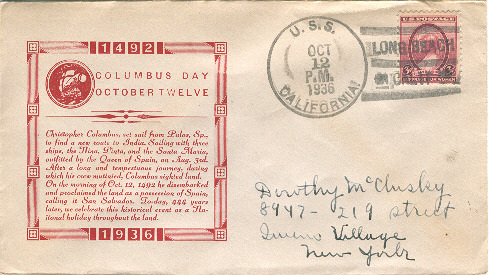 1492
COLUMBUS DAY
OCTOBER TWELVE
Christopher Columbus, set sail from Palos, Sp.,
to find a new route to India. Sailing with three
ships, the Nina, Pinta, and the Santa Maria,
outfitted by the Queen of Spain, on Aug. 3rd.
After a long and tempestuous journey, during
which his crew mutinied, Columbus sighted land.
On the morning of Oct. 12, 1492 he disembarked
and proclaimed the land as a possession of Spain,
calling it San Salvador. To-day, 444 years
later, we celebrate this historical event as a Na-
tional holiday throughout the land.
1936
U.S.S.
OCT
12
P.M.
1936
CALIFORNIA
U.S. POSTAGE
LONG BEACH
Dorothy McClusky
8947-219 street
Queens Village
New York